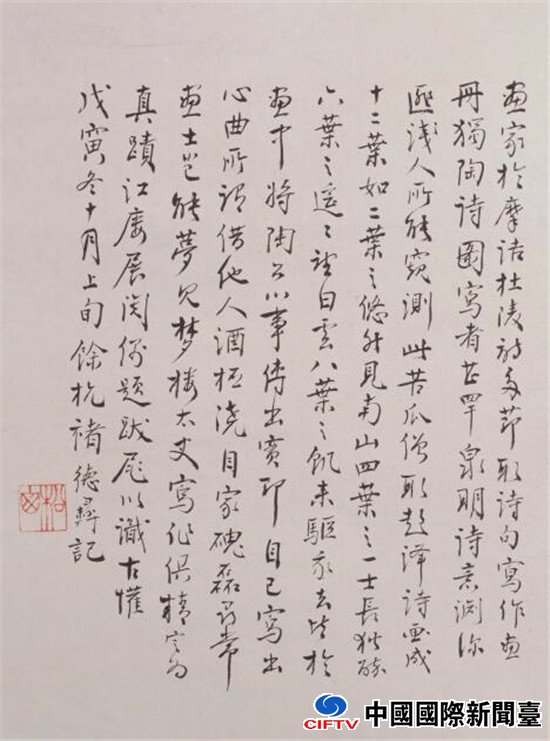 畫家於摩詰杜陵詩多節取詩句寫作畫
冊獨陶詩圖寫者甚罕泉明詩意淵深
匪淺人所能窺測此苦瓜僧取彭澤詩画成
十二葉如二葉之悠然見南山四葉之一士長獨醉
六葉之遙遙望白雲八葉之飢來驅我去皆於
畫中將陶公心事傳出實即自己寫出
心曲所謂借他人酒桮澆自家磈磊尋常
畫士豈能夢見梦樓太史寫作俱精定為
真蹟江廔展閱偶題跋尾以識古懽
戊寅冬十月上旬餘杭褚德彝記
CIFTV 中國國際新聞臺